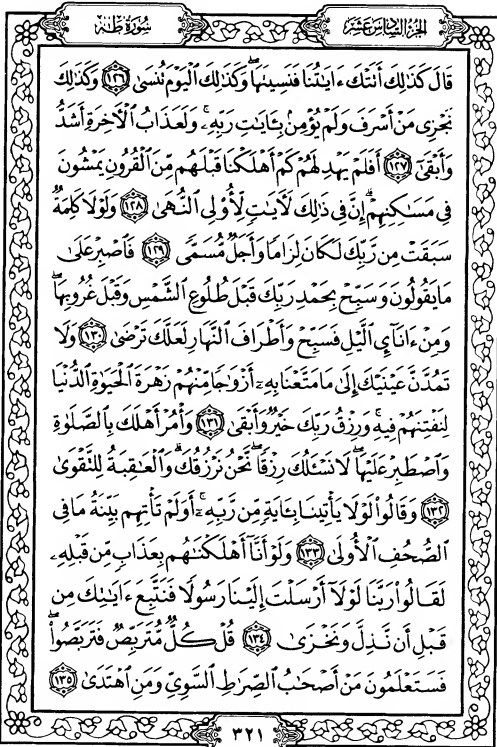 سُورَةُ طه
الجُزْءُ السَّادِسَ عَشَرَ
قَالَ كَذَٰلِكَ أَتَتْكَ ءَايَٰتُنَا فَنَسِيتَهَا ۖ وَكَذَٰلِكَ ٱلْيَوْمَ تُنسَىٰ ١٢٦ وَكَذَٰلِكَ
نَجْزِى مَنْ أَسْرَفَ وَلَمْ يُؤْمِنۢ بِـَٔايَٰتِ رَبِّهِۦ ۚ وَلَعَذَابُ ٱلْـَٔاخِرَةِ أَشَدُّ
وَأَبْقَىٰٓ ١٢٧ أَفَلَمْ يَهْدِ لَهُمْ كَمْ أَهْلَكْنَا قَبْلَهُم مِّنَ ٱلْقُرُونِ يَمْشُونَ
فِى مَسَٰكِنِهِمْ ۗ إِنَّ فِى ذَٰلِكَ لَـَٔايَٰتٍ لِّأُو۟لِى ٱلنُّهَىٰ ١٢٨ وَلَوْلَا كَلِمَةٌ
سَبَقَتْ مِن رَّبِّكَ لَكَانَ لِزَامًا وَأَجَلٌ مُّسَمًّى ١٢٩ فَٱصْبِرْ عَلَىٰ
مَا يَقُولُونَ وَسَبِّحْ بِحَمْدِ رَبِّكَ قَبْلَ طُلُوعِ ٱلشَّمْسِ وَقَبْلَ غُرُوبِهَا ۖ
وَمِنْ ءَانَآئِ ٱلَّيْلِ فَسَبِّحْ وَأَطْرَافَ ٱلنَّهَارِ لَعَلَّكَ تَرْضَىٰ ١٣٠ وَلَا
تَمُدَّنَّ عَيْنَيْكَ إِلَىٰ مَا مَتَّعْنَا بِهِۦٓ أَزْوَٰجًا مِّنْهُمْ زَهْرَةَ ٱلْحَيَوٰةِ ٱلدُّنْيَا
لِنَفْتِنَهُمْ فِيهِ ۚ وَرِزْقُ رَبِّكَ خَيْرٌ وَأَبْقَىٰ ١٣١ وَأْمُرْ أَهْلَكَ بِٱلصَّلَوٰةِ
وَٱصْطَبِرْ عَلَيْهَا ۖ لَا نَسْـَٔلُكَ رِزْقًا ۖ نَّحْنُ نَرْزُقُكَ ۗ وَٱلْعَٰقِبَةُ لِلتَّقْوَىٰ
١٣٢ وَقَالُوا۟ لَوْلَا يَأْتِينَا بِـَٔايَةٍ مِّن رَّبِّهِۦٓ ۚ أَوَلَمْ تَأْتِهِم بَيِّنَةُ مَا فِى
ٱلصُّحُفِ ٱلْأُولَىٰ ١٣٣ وَلَوْ أَنَّآ أَهْلَكْنَٰهُم بِعَذَابٍ مِّن قَبْلِهِۦ
لَقَالُوا۟ رَبَّنَا لَوْلَآ أَرْسَلْتَ إِلَيْنَا رَسُولًا فَنَتَّبِعَ ءَايَٰتِكَ مِن
قَبْلِ أَن نَّذِلَّ وَنَخْزَىٰ ١٣٤ قُلْ كُلٌّ مُّتَرَبِّصٌ فَتَرَبَّصُوا۟ ۖ
فَسَتَعْلَمُونَ مَنْ أَصْحَٰبُ ٱلصِّرَٰطِ ٱلسَّوِىِّ وَمَنِ ٱهْتَدَىٰ ١٣٥
٣٢١